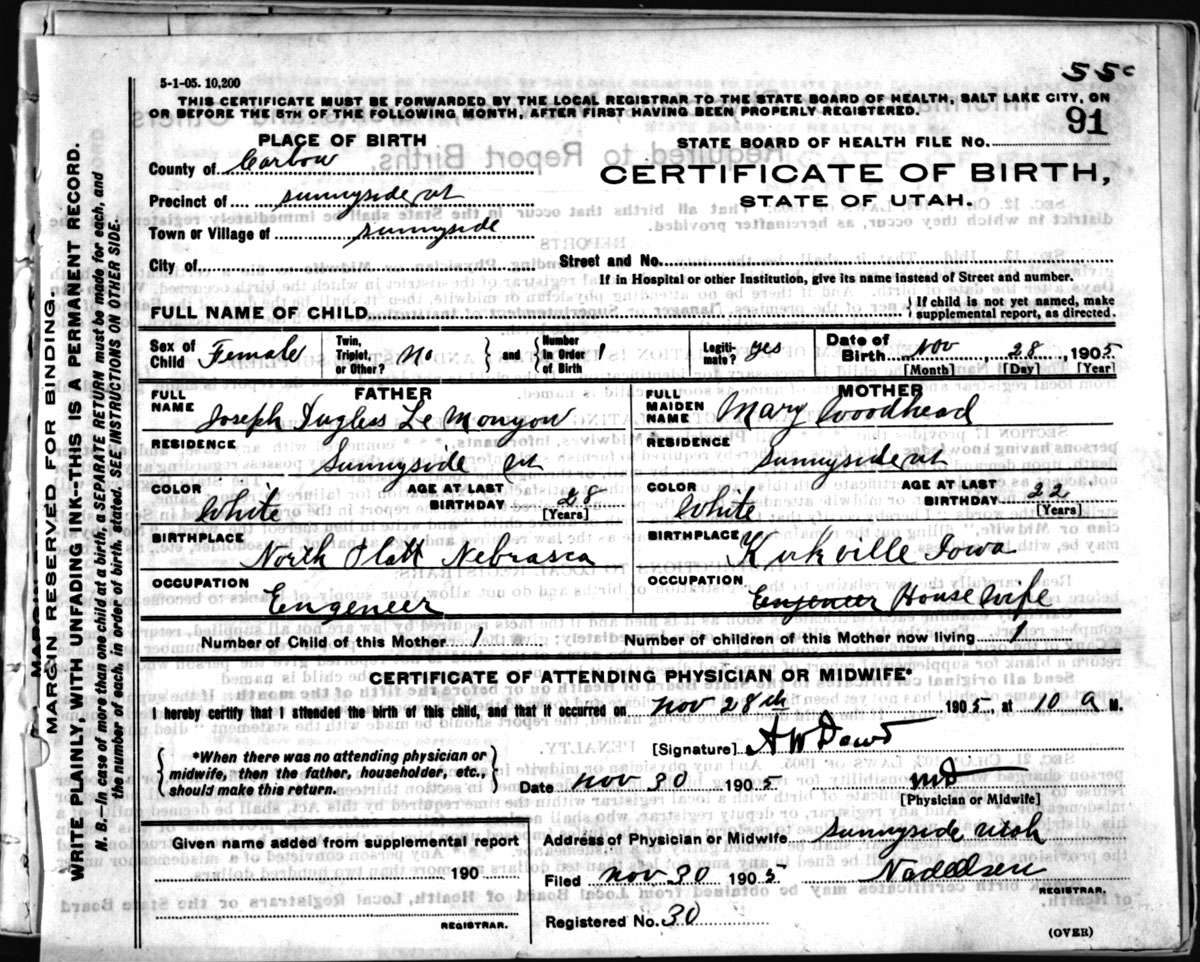 55c
5-1-05. 10,200
THIS CERTIFICATE MUST BE FORWARDED BY THE LOCAL REGISTRAR TO THE STATE BOARD OF HEALTH, SALT LAKE CITY, ON
OR BEFORE THE 5TH OF THE FOLLOWING MONTH, AFTER FIRST HAVING BEEN PROPERLY REGISTERED.
91
PLACE OF BIRTH
STATE BOARD OF HEALTH FILE No.
County of Carbon
CERTIFICATE OF BIRTH,
Precinct of Sunnyside ut
STATE OF UTAH.
Town or Village of Sunnyside
City of
Street and No.
If in Hospital or other Institution, give its name instead of Street and number.
FULL NAME OF CHILD
{ If child is not yet named, make supplemental report, as directed.
Sex of Child Female Twin, Triplet, or Other? No } and { Number In Order of Birth 1 Legiti-mate? yes Date of Birth Nov, 28, 1905
[Month] [Day] [Year]
FATHER MOTHER
FULL NAME Joseph Le FULL MAIDEN NAME Mary Woodhead
RESIDENCE RESIDENCE
Sunnyside ut Sunnyside ut
COLOR White AGE AT LAST BIRTHDAY 28 [Years] COLOR White AGE AT LAST BIRTHDAY 22 [Years]
BIRTHPLACE North Platt Nebrasca BIRTHPLACE Kirkville Iowa
OCCUPATION Engeneer OCCUPATION Engeneer House Wife
Number of Child of this Mother 1 Number of children of this Mother now living 1
CERTIFICATE OF ATTENDING PHYSICIAN OR MIDWIFE*
I hereby certify that I attended the birth of this child, and that it occurred on Nov 28th 1905, at 10 a M.
[Signature] A W Dowd
{ *When there was no attending physician or midwife, then the father, householder, etc., should make this return. }
Date Nov 30 1905 MD
[Physician or Midwife]
Given name added from supplemental report
Address of Physician or Midwife Sunnyside Utah
190
Filed Nov 30 1905
REGISTRAR.
Registered No. 30
REGISTRAR.
(OVER)
MARGIN RESERVED FOR BINDING.
WRITE PLAINLY, WITH UNFADING INK--THIS IS A PERMANENT RECORD.
N. B.—In case of more than one child at a birth, a SEPARATE RETURN must be made for each, and
the number of each, in order of birth, stated. SEE INSTRUCTIONS ON OTHER SIDE.